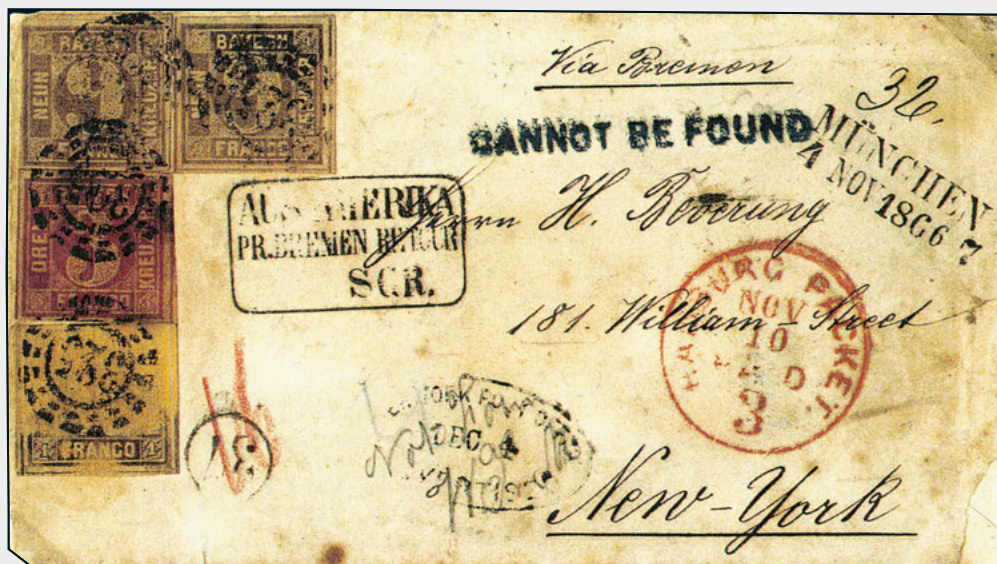 BAYERN
NEUN
KREUZER
BAYERN
FRANCO
DREI
KREUZER
3
1 FRANCO 1
Via Bremen
32.
CANNOT BE FOUND
MÜNCHEN
4 NOV 1866 7
AUS AMERIKA
PR. BREMEN RETOUR
S.C.R.
Herrn H. Beverung
181. William-Street
HAMBURG PACKET.
NOV
10
PAID
3
DEC 4
New-York